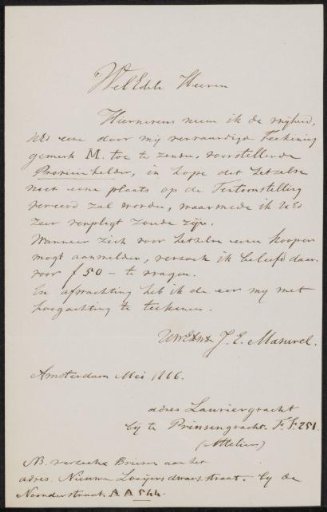 WelEdele Heeren
Hiernevens neem ik de vrijheid
UEd eene door mij vervaardigde Teekening
gemerk M. toe te zenden, voorstellende
in hope dat dezelve
met eene plaats op de Tentoonstelling
vereerd zal worden, waarmede ik UEd
zeer verpligt zoude zijn.
Wanneer zich voor dezelve eenen kooper
mogt aanmelden, verzoek ik beleefd daar
voor ƒ 50 - te vragen.
In afwachting heb ik de eer mij met
hoogachting te teekenen.
UwEdDw J. E. Masurel.
Amsterdam Mei 1866.
adres Lauriergracht
bij de Prinsengracht. F. F. 251
(Attelier)
NB. aan het
adres. Nieuwe Looijers dwarsstraat. bij de
A A 544.